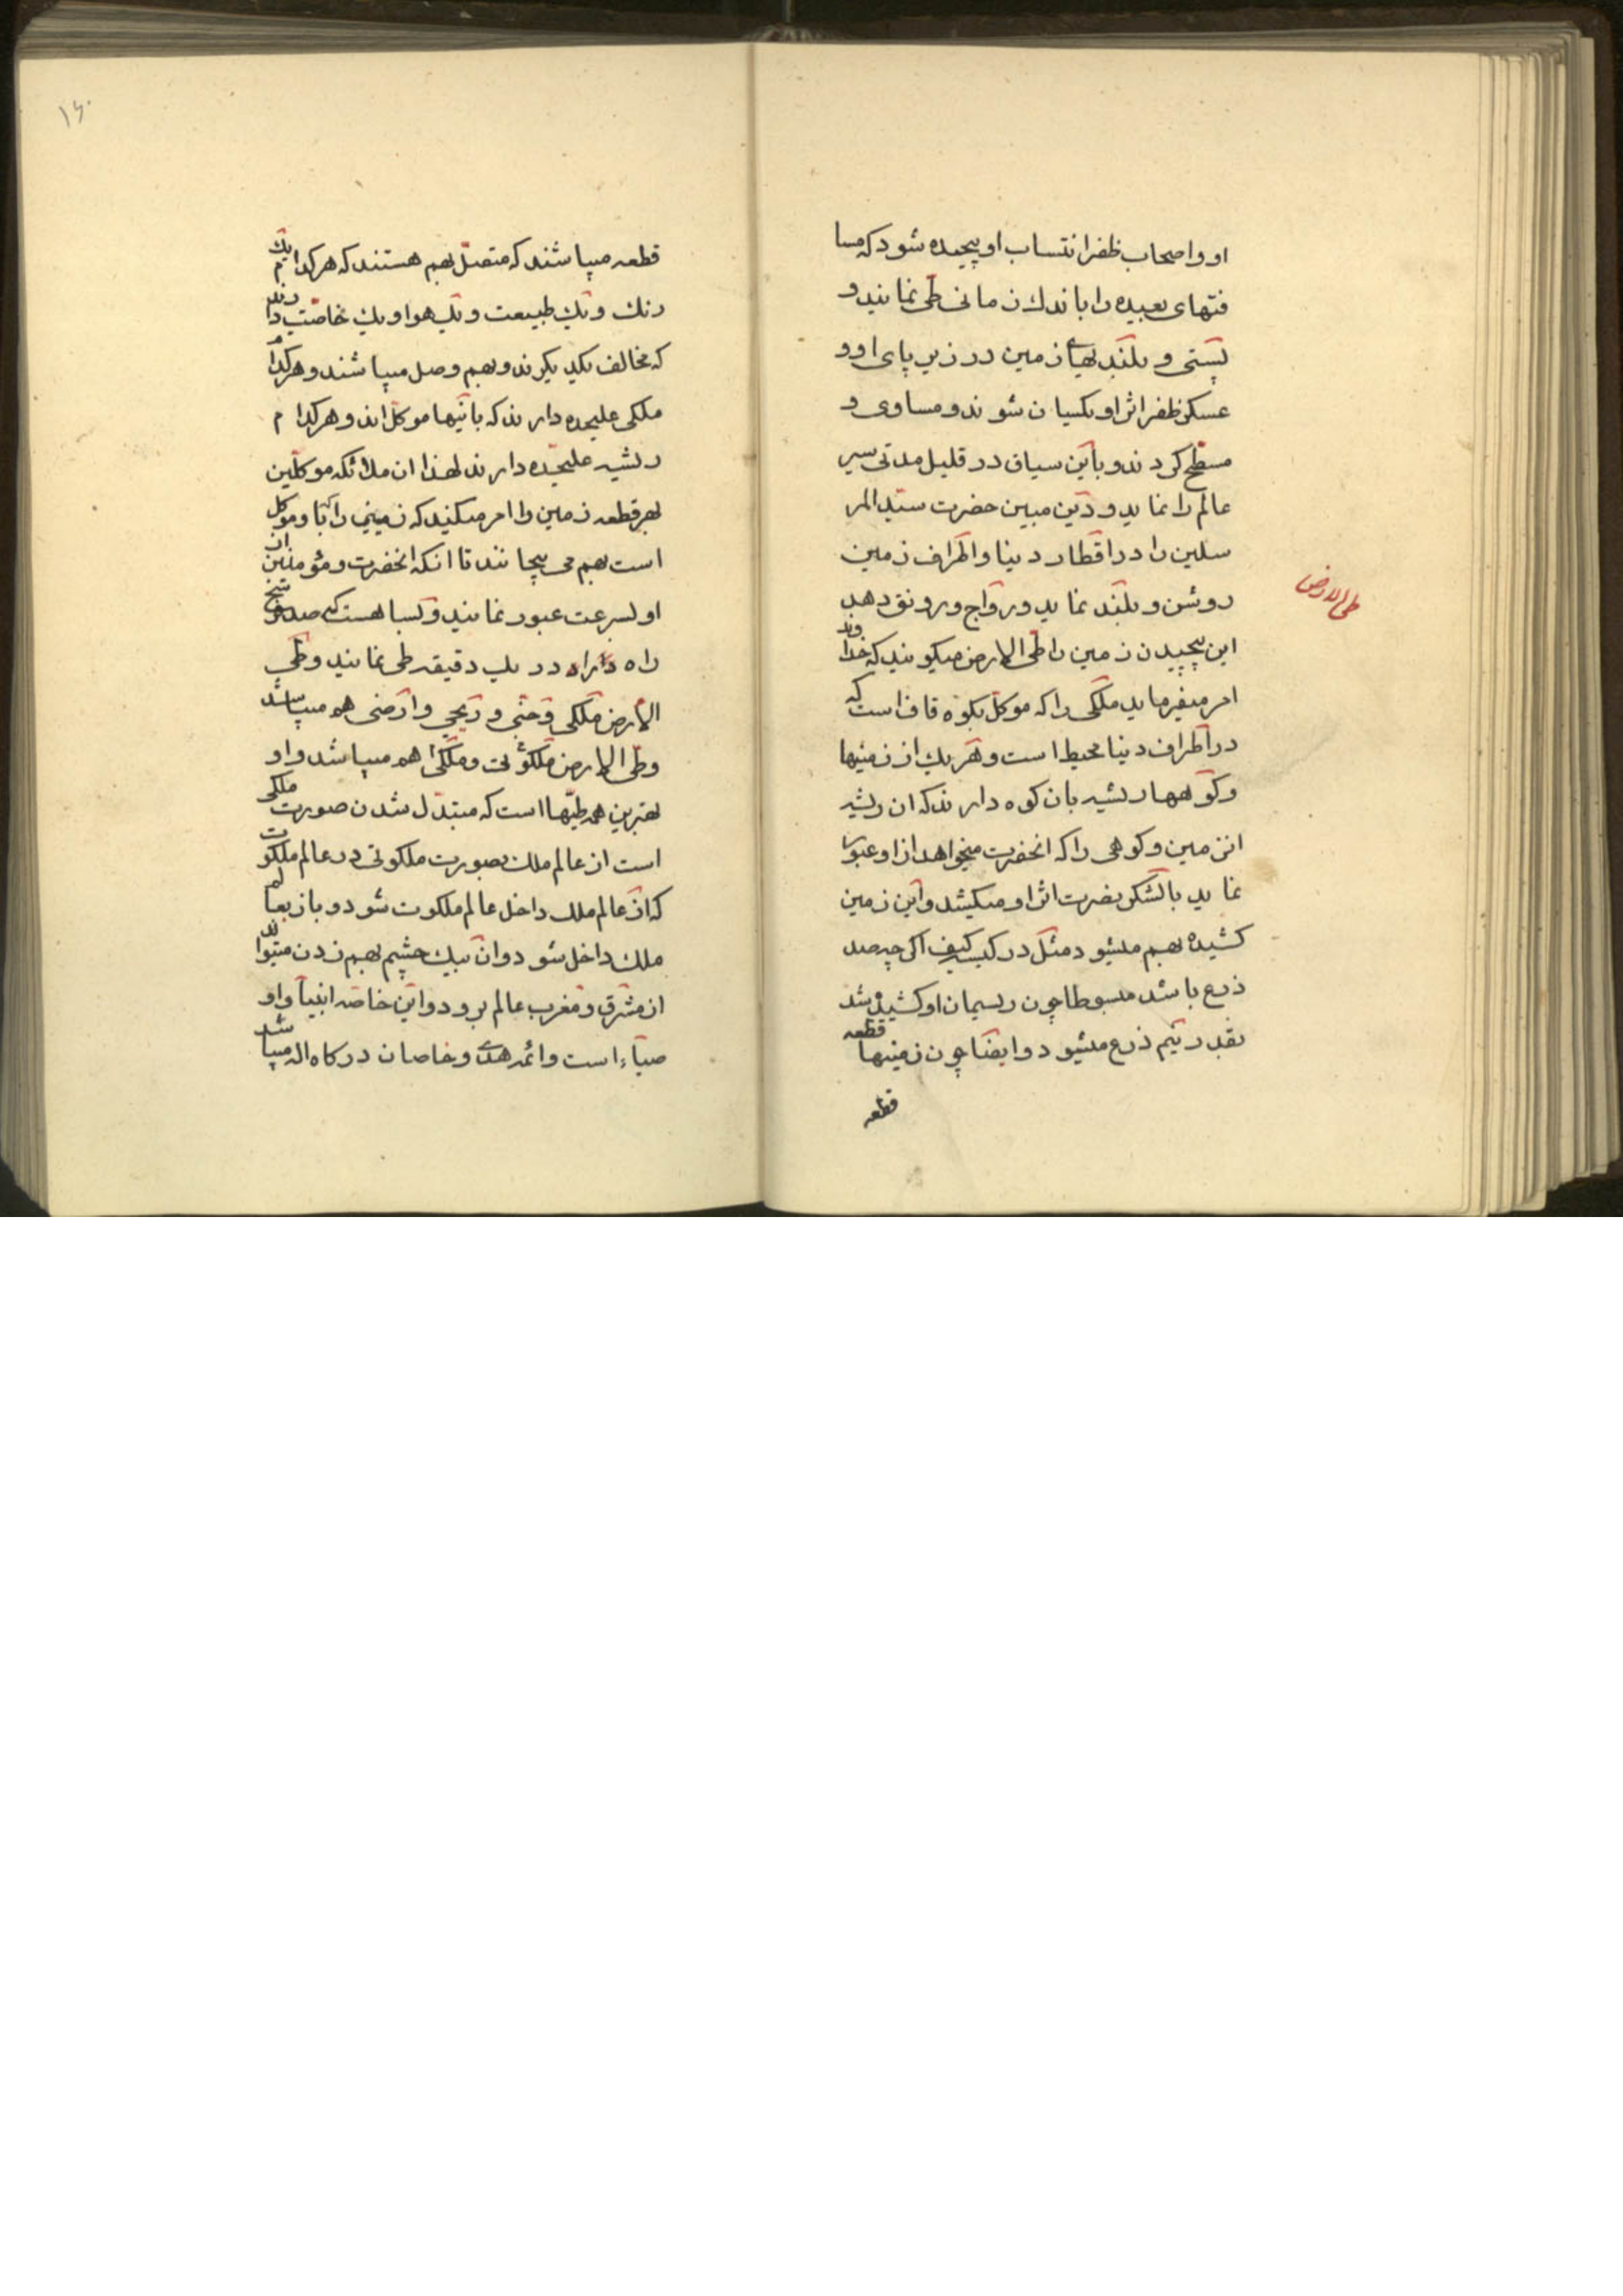 او و اصحاب ظفر انتساب او پیچیده شود که مسا
فتهای بعیده را باندك زمانی طی نمایند و
پستی و بلندیهای زمین در زیر پای او و
عسکر ظفر اثر او یکسان شوند و مساوی و
مسطح کردند و باین سیاق در قلیل مدتی سیر
عالم را نماید و دین مبین حضرت سید المر
سلین را در اقطار دنیا و اطراف زمین
روشن و بلند نماید و رواج و رونق دهد
طی الارض
این پیچیدن زمین را طی الارض میکویند که خداوند
امر میفرماید ملکی را که موکل بکوه قاف است که
در اطراف دنیا محیط است و هر یك از زمینها
و کوهها ریشه بان کوه دارند که ان ریشه
انزمین و کوهی را که انحضرت میخواهد از او عبور
نماید با لشکر نصرت اثر او میکشد و این زمین
کشیده بهم میشود مثل در کیسه کیف اکر چه صد
ذرع باشد مبسوطا چون ریسمان او کشیده شد
بقدر نیم ذرع میشود و ایضا چون زمینها قطعه
قطعه
۱۶۰
قطعه میباشند که متصل بهم هستند که هر کدام یك
رنك و یك طبیعت و یك هوا و یك خاصیت دارند
که مخالف یکدیکرند و بهم وصل میباشند و هر کدام
ملکی علیحده دارند که باینها موکل اند و هر کدام
ریشه علیحده دارند لهذا ان ملائکه موکلین
بهر قطعه زمین را امر میکنند که زمینی را که با و موکل
است بهم می پیچانند تا انکه انحضرت و مؤمنین ان
او بسرعت عبور نمایند و بسا هست که صد فرسخ
راه را در یك دقیقه طی نمایند و طی
الارض ملکی و جنی و ریحی و ارضی هم میباشد
و طی الارض ملکوتی و ملکی هم میباشد و او
بهترین همه طیها است که مبتدل شدن صورت ملکی
است از عالم ملك بصورت ملکوتی در عالم ملکوت
که از عالم ملك داخل عالم ملکوت شود و باز بعالم
ملك داخل شود و ان بیك چشم بهم زدن میتواند
از مشرق و مغرب عالم برود و این خاصه انبیا و او
صیاء است و ائمه هدی و خاصان درکاه اله میباشد